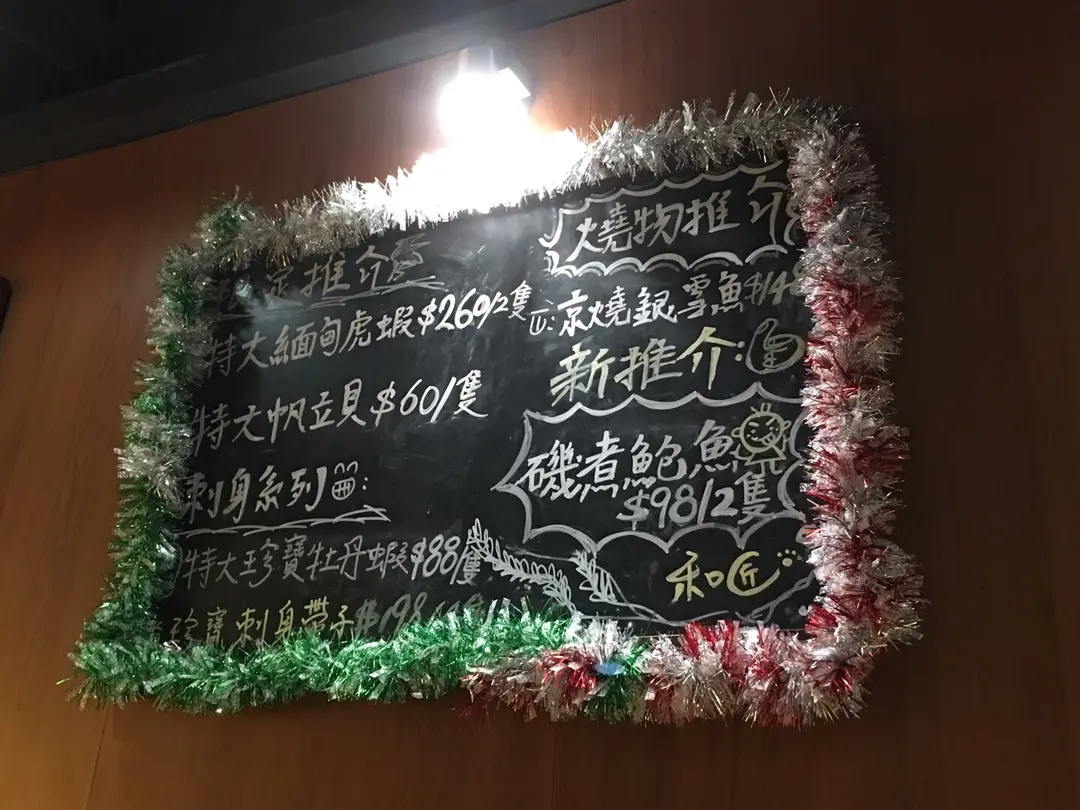 定推介
特大緬甸虎蝦$260/2隻
特大帆立貝$60/隻
刺身系列:
特大珍寶牡丹蝦$88/隻
珍寶刺身帶子$198
燒物推介
京燒銀雪魚$148
新推介:
磯煮鮑魚
$98/2隻
和匠